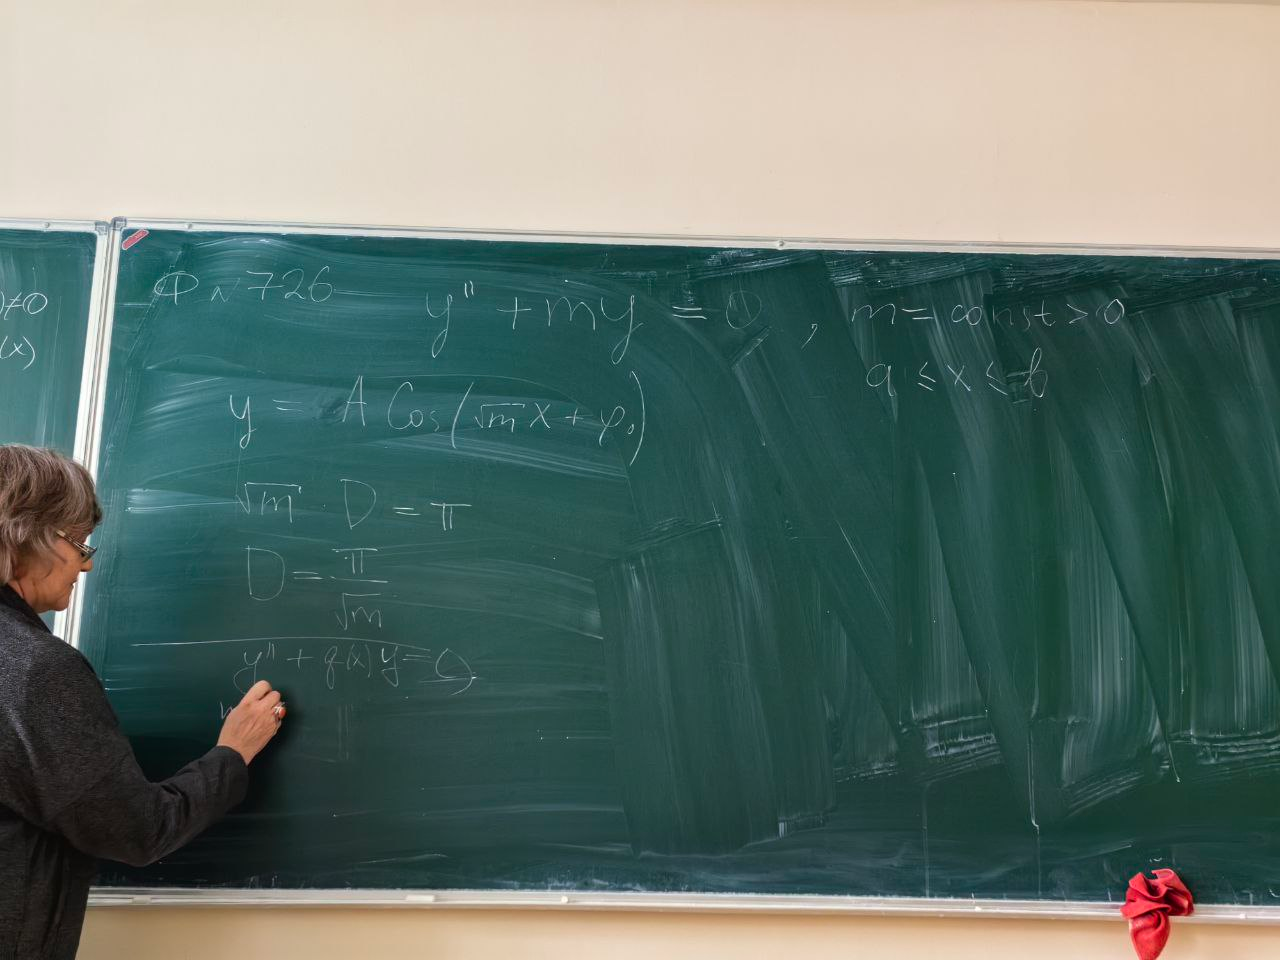 )≠0
(x)
Ф ~ 726
y" + my = 0 , m = const > 0
a ≤ x ≤ b
y = A Cos(√m x + φ₀)
√m · D = π
D = π/√m
y" + q(x) y = 0
m